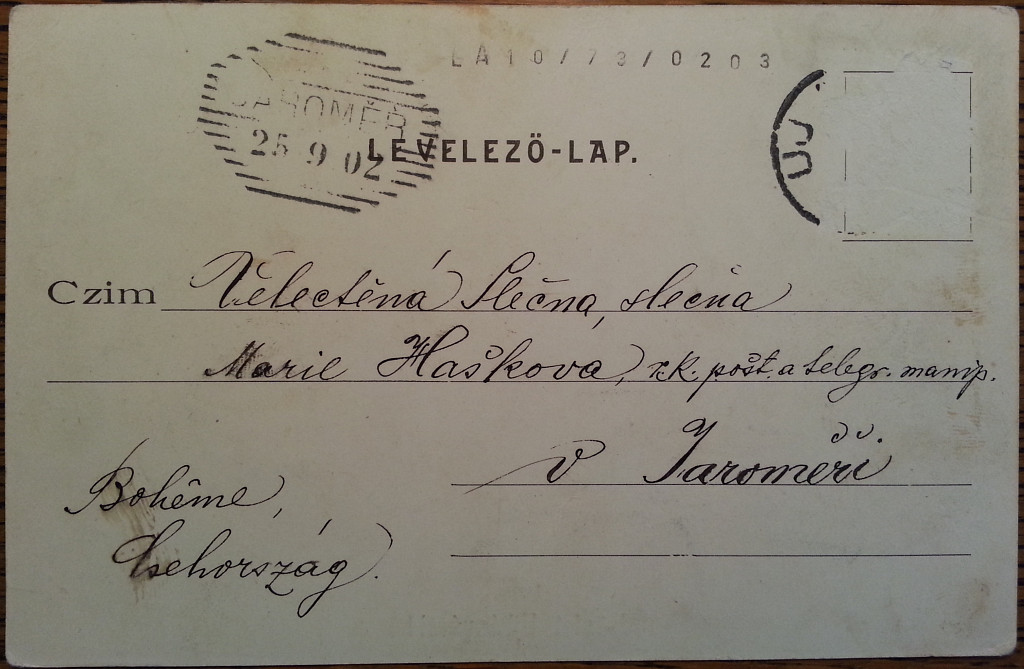 LA10/73/0203
JAROMĚŘ
25 9 02
LEVELEZŐ-LAP.
Czim Velectěná Slečna, slečna
Marie Haškova, c.k. pošt. a telegr. manip.
v Jaroměři
Bohême,
Csehország.